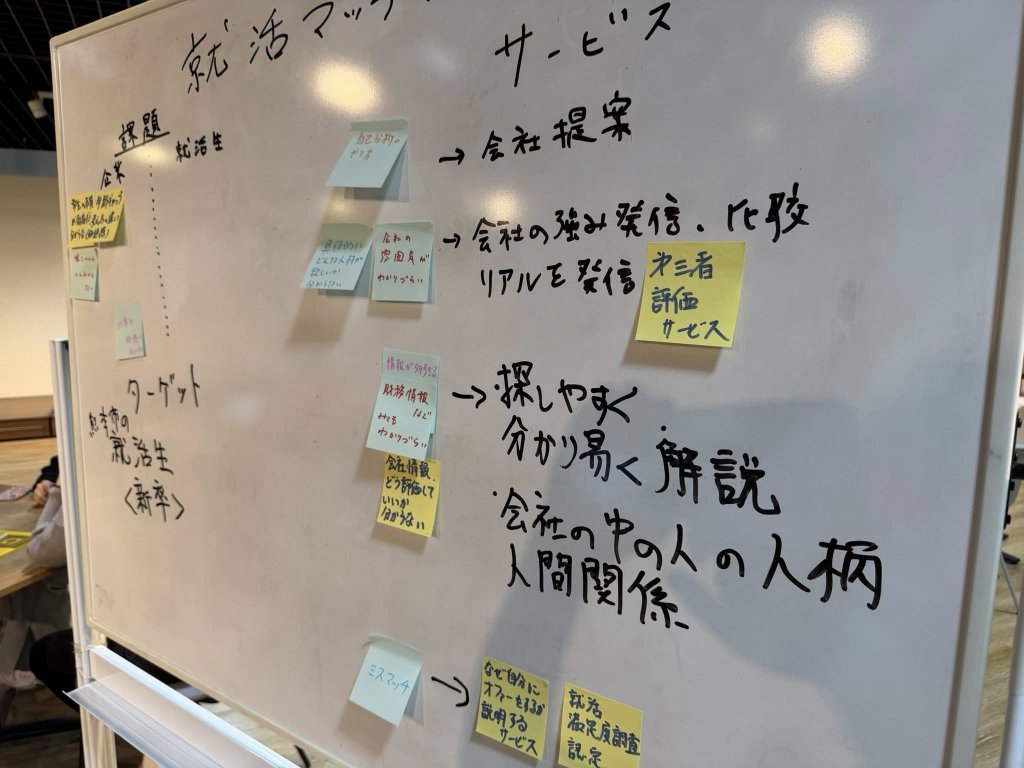 就活マッチ
サービス
課題
企業
就活生
自己分析の
やり方
→ 会社提案
具体的に
どんな人材が
欲しいか
分からない
会社の
雰囲気が
わかりづらい
→ 会社の強み発信、比較
リアルを発信
第三者
評価
サービス
ターゲット
就活生
<新卒>
情報が
財務情報
など
みても
わかりづらい
→ 探しやすく
分かり易く解説
会社情報、
どう評価して
いいか
分からない
会社の中の人の人柄
人間関係
ミスマッチ
→
なぜ自分に
オファーをするか
説明する
サービス
就活
満足度調査
認定